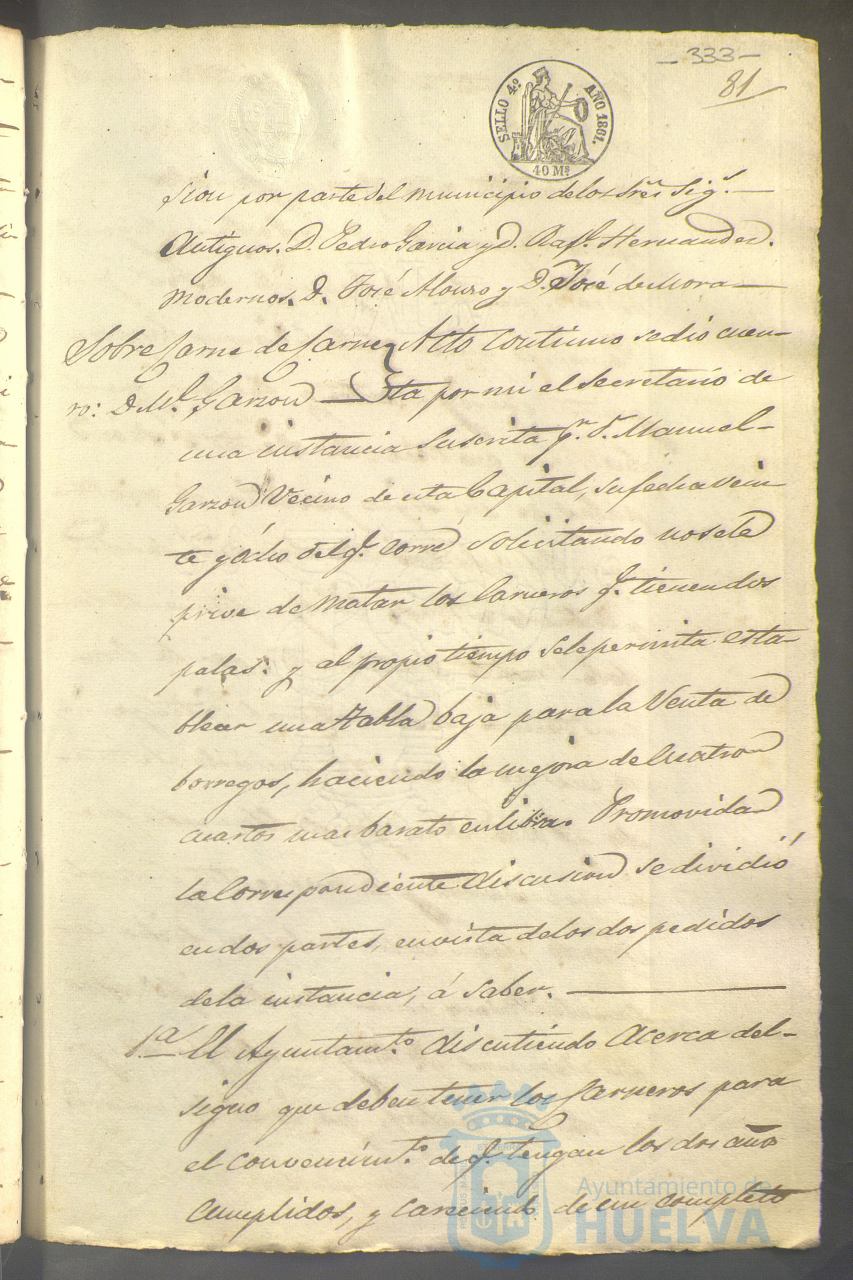 - 333 -
81
SELLO 4º AÑO 1861.
40 Ms
sion por parte del municipio de los Sres Sigs.
Antiguos. D. Pedro Garcia y D. Rafl. Hernandez.
Modernos. D. José Alonso y D. José de Mora
Sobre Carne de Carne
ro: D Ml. Garzon
Acto continuo se dió cuen-
ta por mi el Secretario de
una instancia suscrita pr. Dn. Manuel
Garzon Vecino de esta Capital, su fecha vein
te y ocho del q. corre solicitando no se le
prive de matar los Carneros q. tienen dos
palas: y al propio tiempo se le permita esta-
blecer una tabla baja para la Venta de
borregos, haciendo la mejora de cuatro
cuartos mas barato en libra. Promovida
la correspondiente discusion se dividió
en dos partes, en vista de los dos pedidos
de la instancia, á saber.
1a El Ayuntamto. discutiendo acerca del
signo que deben tener los Carneros para
el convencimto. de q. tengan los dos años
cumplidos, y careciendo de un completo
Ayuntamiento de
HUELVA